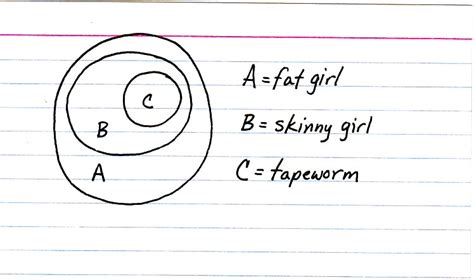 C
A = fat girl
B
B = skinny girl
A
C = tapeworm